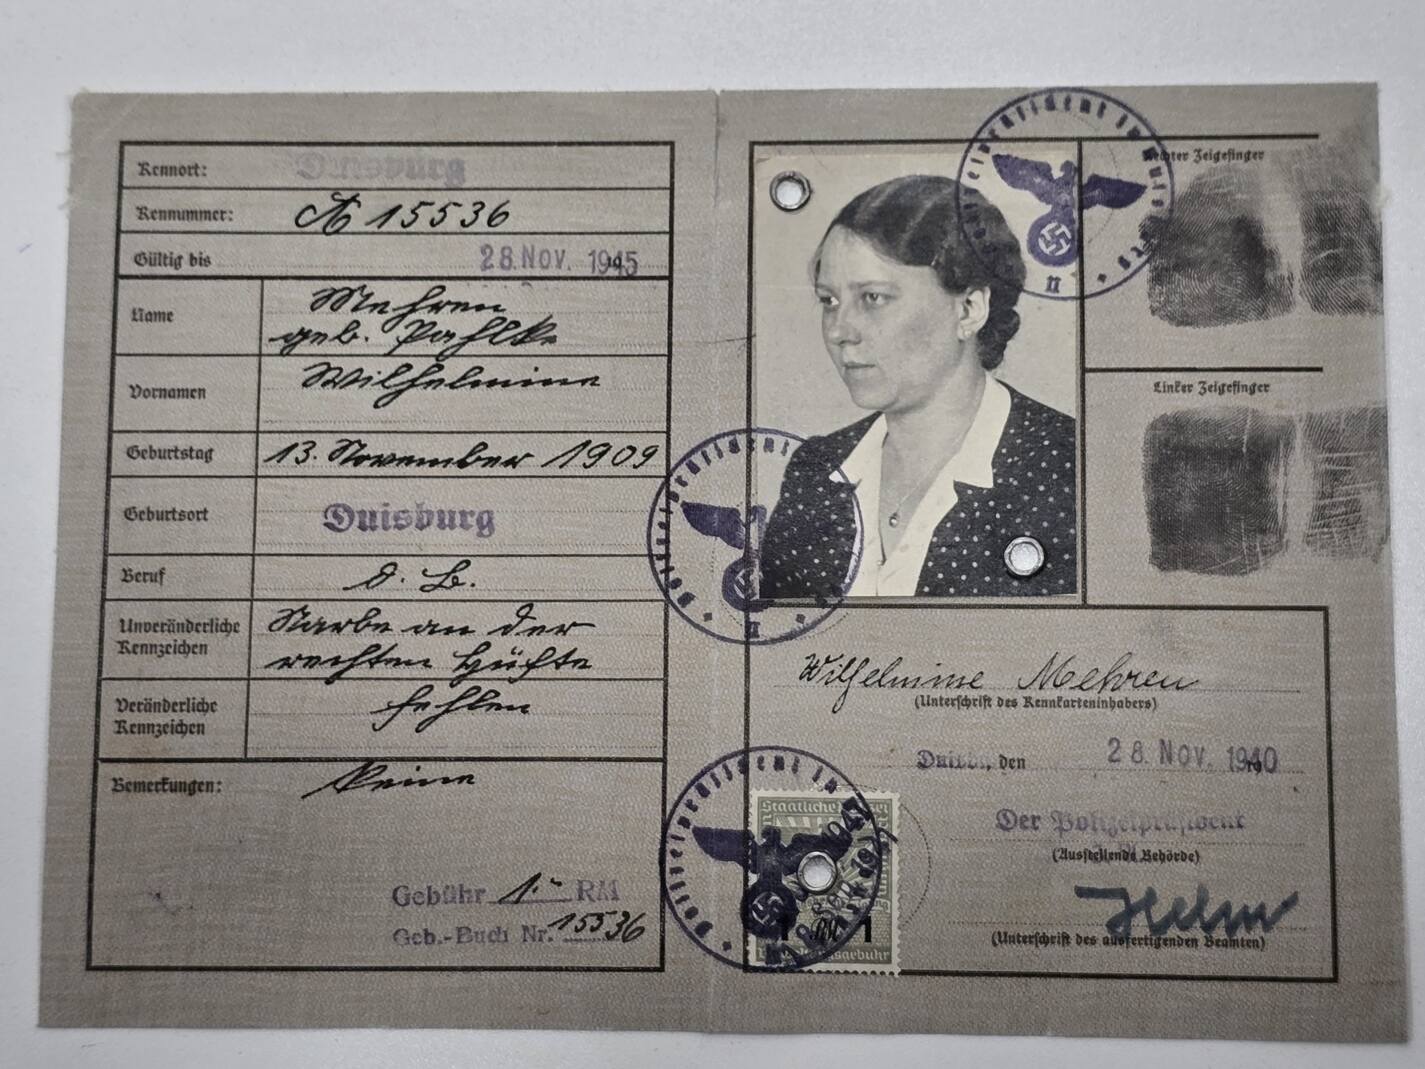 Kennort: Duisburg
Kennummer: A 15536
Gültig bis 28. NOV. 1945
Name Mehren
geb. Pahlke
Vornamen Wilhelmine
Geburtstag 13. November 1909
Geburtsort Duisburg
Beruf o. B.
Unveränderliche Kennzeichen Narbe an der
rechten Hüfte
Veränderliche Kennzeichen fehlen
Bemerkungen: Keine
Gebühr 1.- RM
Geb.-Buch Nr. 15536
Polizeipräsident in Duisburg
11
Rechter Zeigefinger
Linker Zeigefinger
Polizeipräsident
11
Wilhelmine Mehren
(Unterschrift des Kennkarteninhabers)
Duisb., den 28. NOV. 1940
Der Polizeipräsident
(Ausstellende Behörde)
Helm
(Unterschrift des ausfertigenden Beamten)
Polizeipräsident in
Staatliche Polizei
1